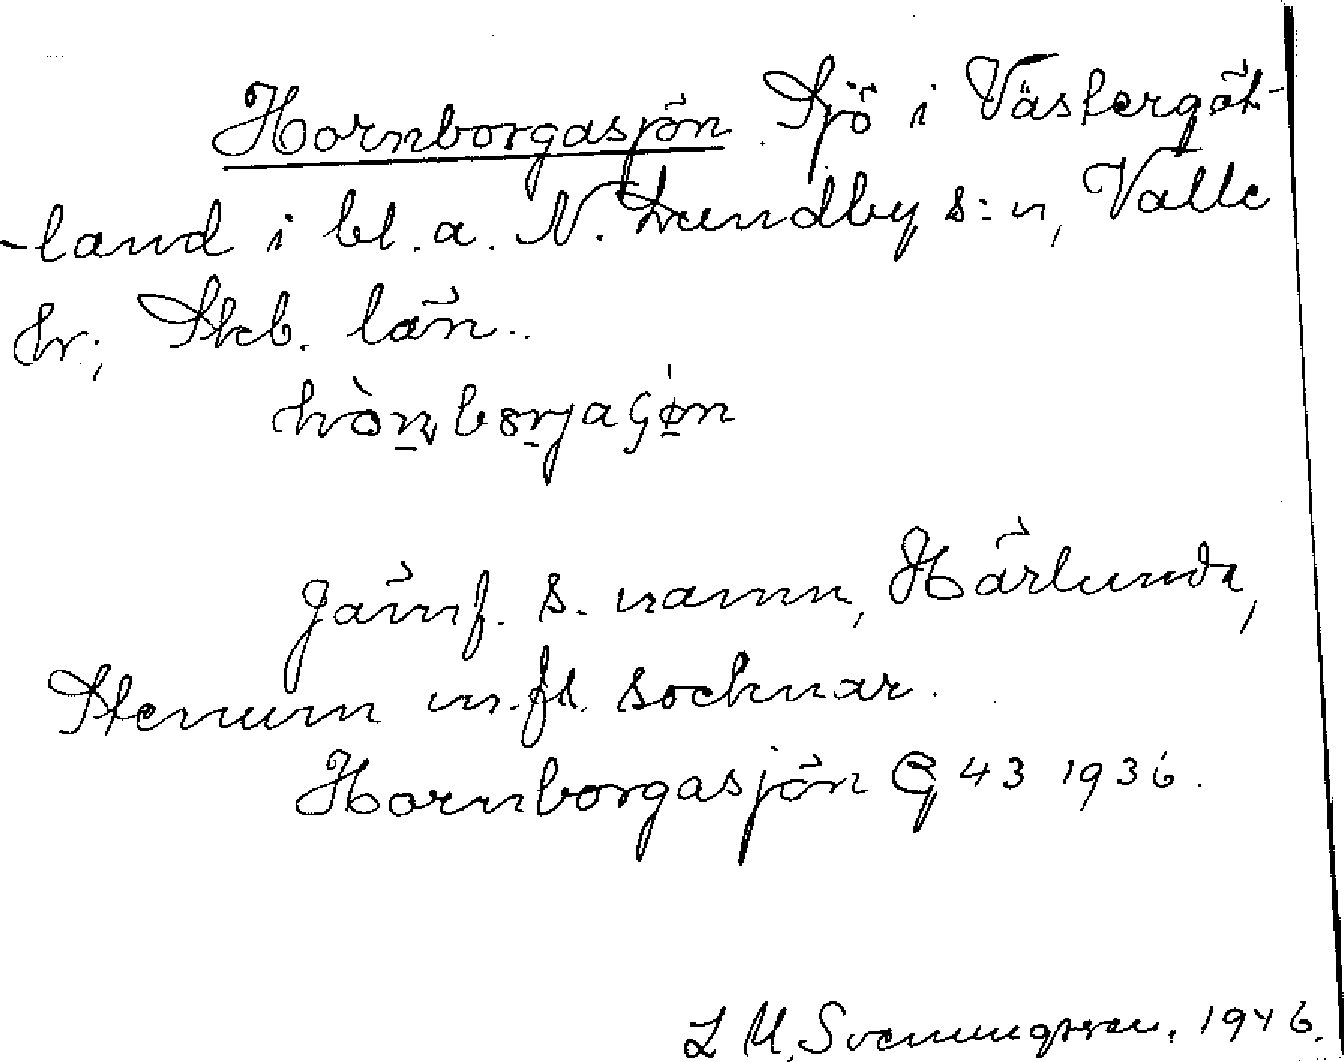 Hornborgasjön Sjö i Västergöt-
-land i bl. a. N. Lundby s:n, Valle
hr, Skb. län.
hòn̠borjaʂø̠n
Jämf. s. namn, Härlunda,
Stenum m. fl. socknar.
Hornborgasjön G 43 1936.
1946.